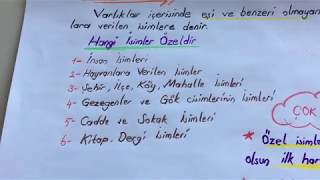 Varlıklar içerisinde eşi ve benzeri olmayan
lara verilen isimlere denir.
Hangi İsimler Özeldir
1- İnsan İsimleri
2- Hayvanlara Verilen İsimler
3- Şehir, İlçe, Köy, Mahalle İsimleri
4- Gezegenler ve Gök cisimlerinin isimleri
5- Cadde ve Sokak İsimleri
6- Kitap, Dergi İsimleri
ÇOK
* Özel isimle
olsun ilk har